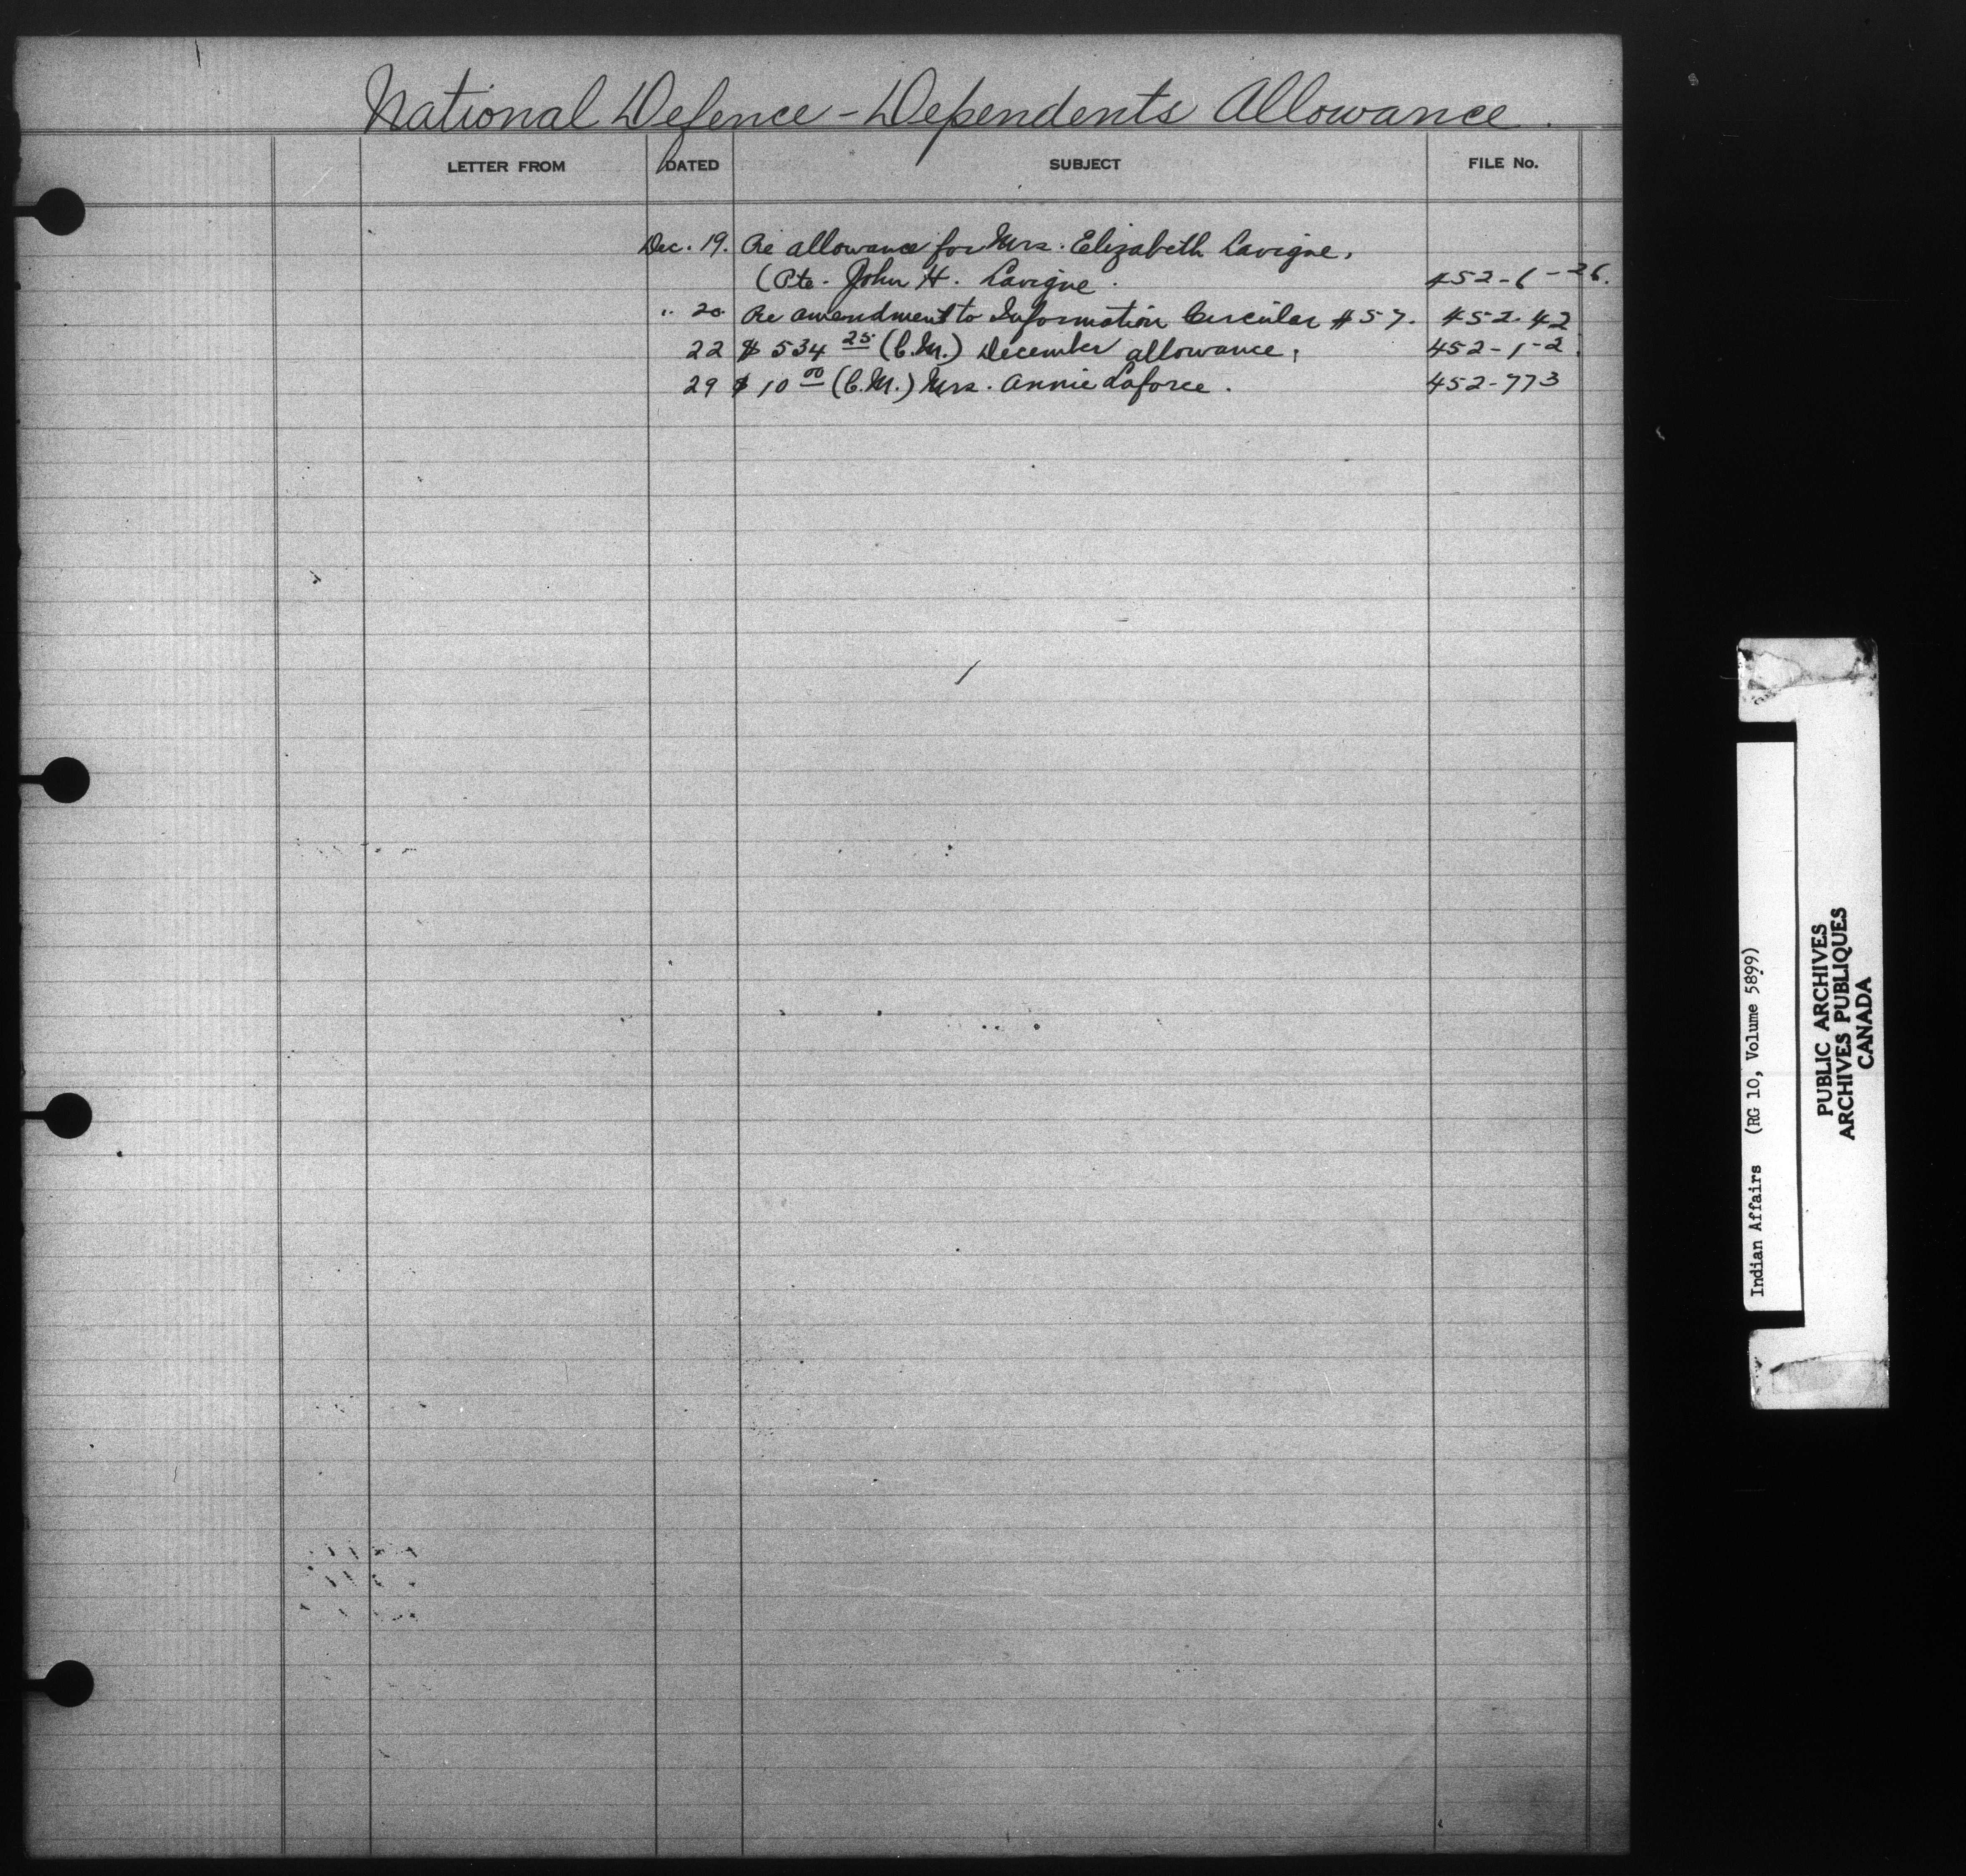 National Defence - Dependents Allowance.
LETTER FROM DATED SUBJECT FILE No.
Dec. 19. Re allowance for Mrs. Elizabeth Lavigne,
(Pte. John H. Lavigne. 452-6-26.
" 20 Re amendment to Information Circular #57. 452-42
22 $534 25 (C.M.) December allowance, 452-1-2.
29 $10 00 (C.M.) Mrs. Annie Laforce. 452-773
Indian Affairs (RG 10, Volume 5899)
PUBLIC ARCHIVES
ARCHIVES PUBLIQUES
CANADA